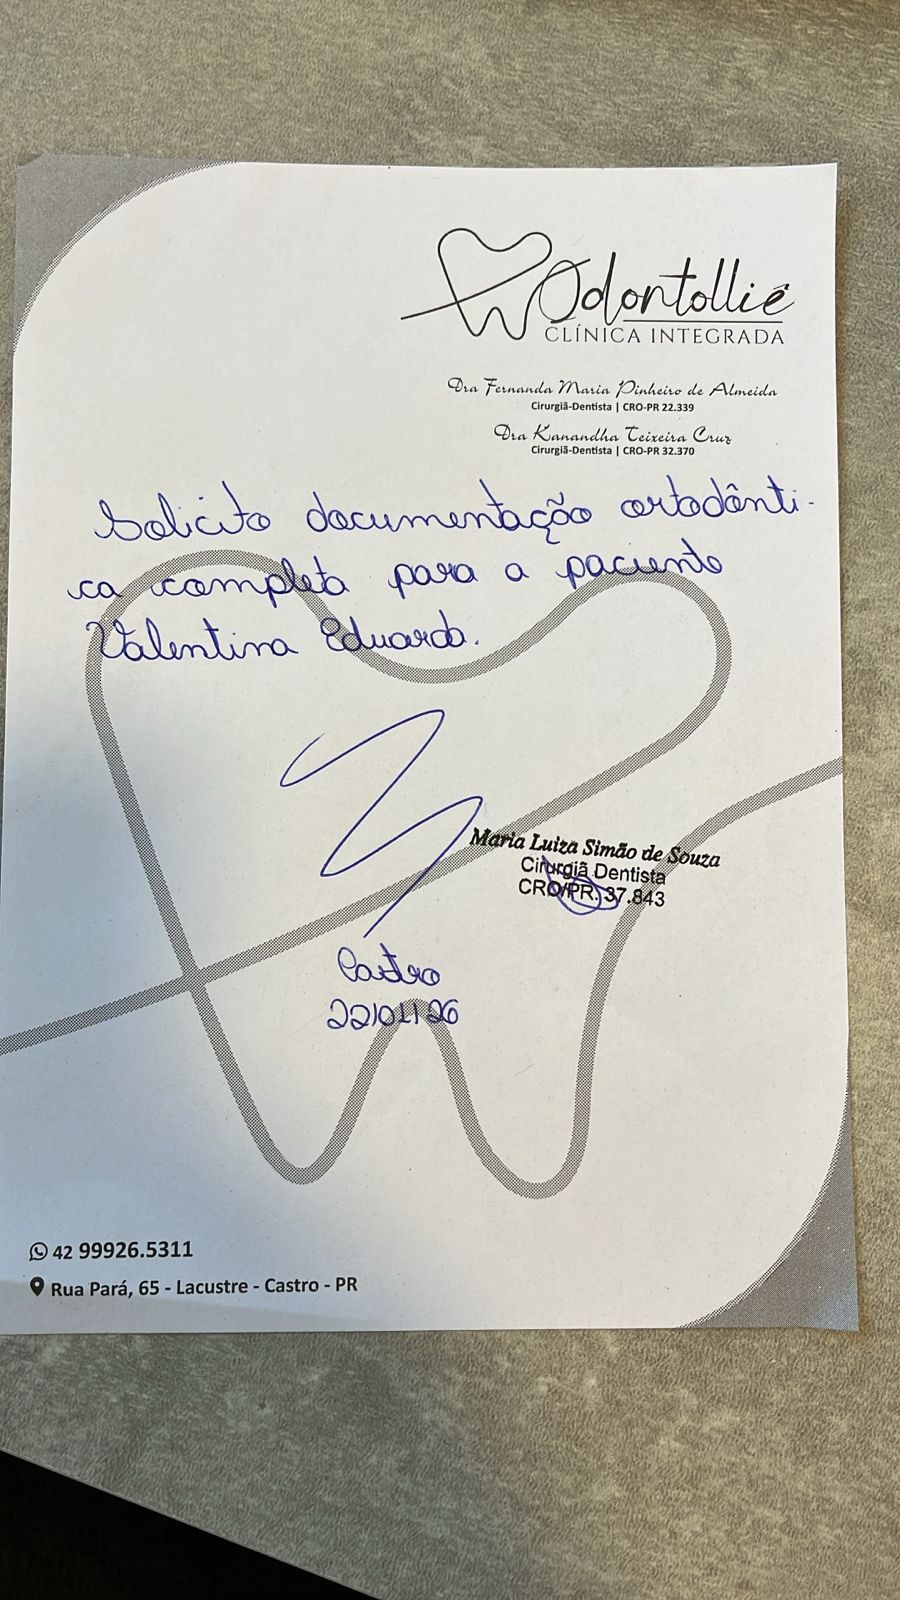 Odontolliê
CLÍNICA INTEGRADA
Dra Fernanda Maria Pinheiro de Almeida
Cirurgiã-Dentista | CRO-PR 22.339
Dra Kanandha Teixeira Cruz
Cirurgiã-Dentista | CRO-PR 32.370
Solicito documentação ortodônti-
ca completa para a paciente
Valentina Eduarda.
Maria Luiza Simão de Souza
Cirurgiã Dentista
CRO/PR. 37.843
Castro
22/01/26
42 99926.5311
Rua Pará, 65 - Lacustre - Castro - PR